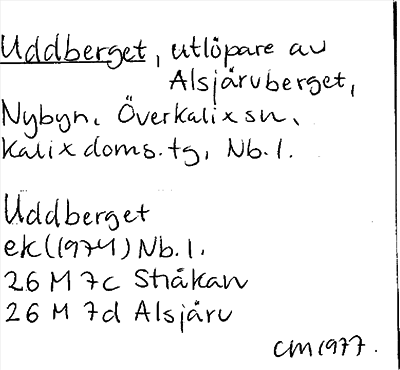 Uddberget, utlöpare av
Alsjärvberget,
Nybyn, Överkalix sn,
Kalix doms.tg, Nb.l.
Uddberget
ek (1974) Nb.l.
26 M 7c Stråkan
26 M 7d Alsjärv
CM 1977.